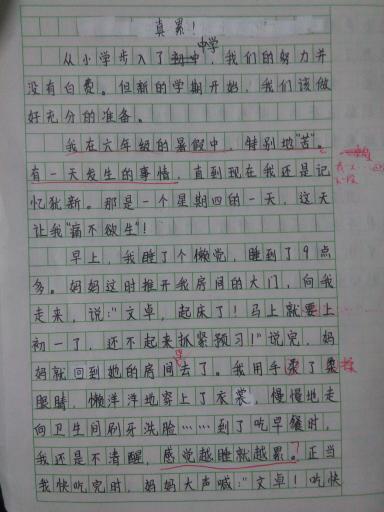 真累!
中学
从小学步入了初中，我们的努力并
没有白费。但新的学期开始，我们该做
好充分的准备。
我在六年级的暑假中，特别地“苦”。
有一天发生的事情，直到现在我还是记
忆犹新。那是一个星期四的一天，这天
让我“痛不欲生”!
早上，我睡了个懒觉，睡到了9点
多。妈妈这时推开我房间的大门，向我
走来，说:“文卓，起床了!马上就要上
初一了，还不起来抓紧预习!”说完，妈
妈就回到她的房间去了。我用手柔了柔
眼睛，懒洋洋地穿上了衣裳，慢慢地走
向卫生间刷牙洗脸……到了吃早餐时，
我还是不清醒，感觉越睡就越累。正当
我快吃完时，妈妈大声喊:“文卓!吃快